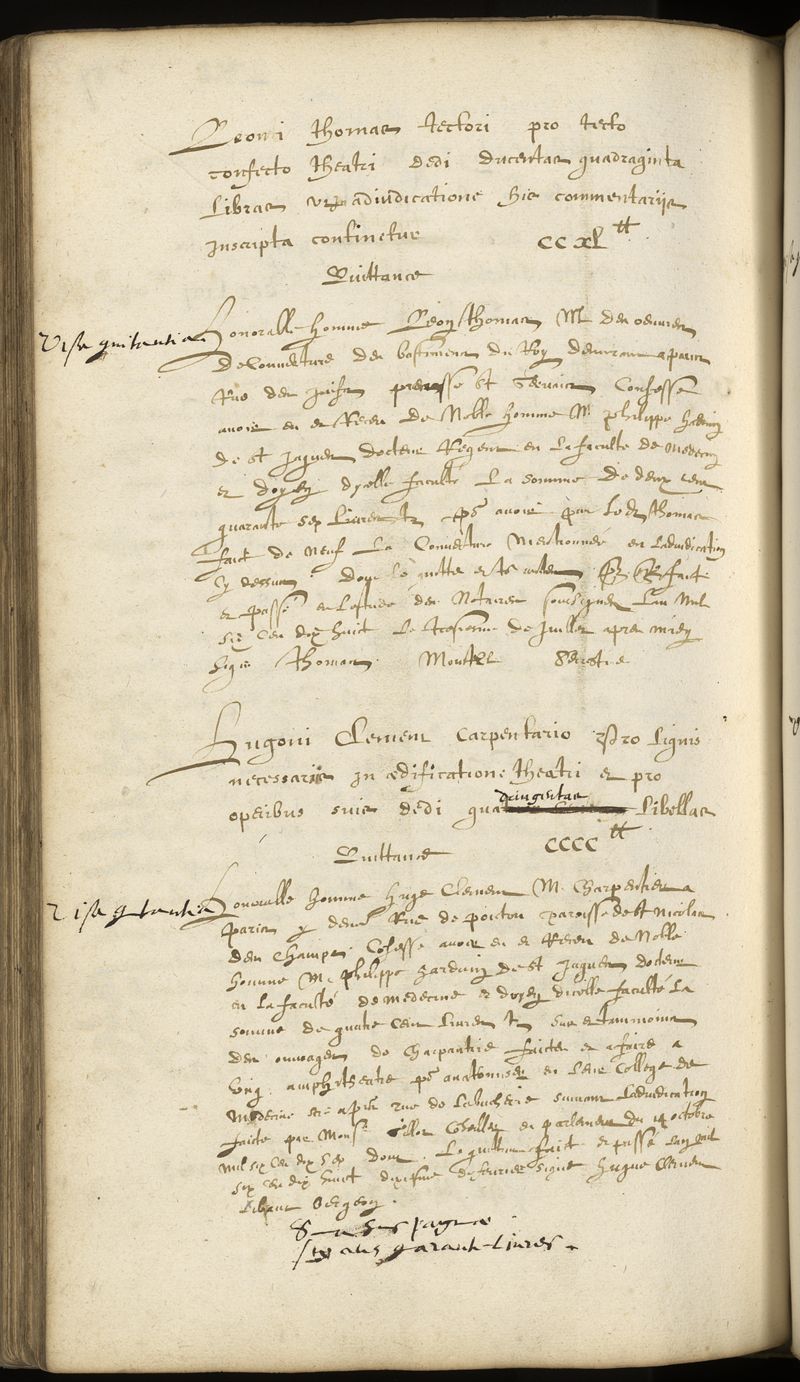 Leoni Thomas tectori pro tecto
confecto theatri dedi ducentas quadraginta
Libras adiudicatione his commentarijs
inscripta continetur CCXL tt
Quittance
Visa quitantia
Honorable homme Leon Thomas Me des oeuvres
de Couverture des bastimens du Roy demeurant a paris
Rue des paroisse st Gervais Confesse
avoir eu et Receu de Noble homme Me philippe harduin
de st Jaques docteur Regent en La faculté de Medecine
et doyen dycelle faculté La somme de deux cens
quarante livres tz po avoir par led Thomas
faict de neuf La Couverture Mentionnée en Ladiudication
cy dessus dont quitte faict
et passé es estudes des Notaires soubsignez Lan Mil
six cens dix huict Le de Juillet apres midy
signe Thomas
Hugoni Clement Carpentario pro lignis
necessariis in ædificatione theatri et pro
operibus suis dedi quadringentas Libellas
CCCC tt
Quittance
Visa quitantia
Honorable homme Huge Clement Me Charpentier a
paris y demt Rue de poitou paroisse de st Nicolas
des Champs Cofesse avoir eu et Receu de Noble
homme Me philippe harduin de st Jaques docteur
en La faculté de medecine et doyen dicelle faculté La
somme de quatre cens livres tz sur et tanmoins
des ouvrages de Charpenterie faictes et a faire a
ung amphitheatre po anatomiser en leur College de
Medecine sis a paris rue de La bucherie suivant Ladiudication
faicte par Monsr Coseiller en parlement du 14 octobre
mil six cens dix sept dont quittance faict et passé Lan mil
six cens dix huict de febvrier signe Hugue Clement

Summa pagine
six cens quarante livres